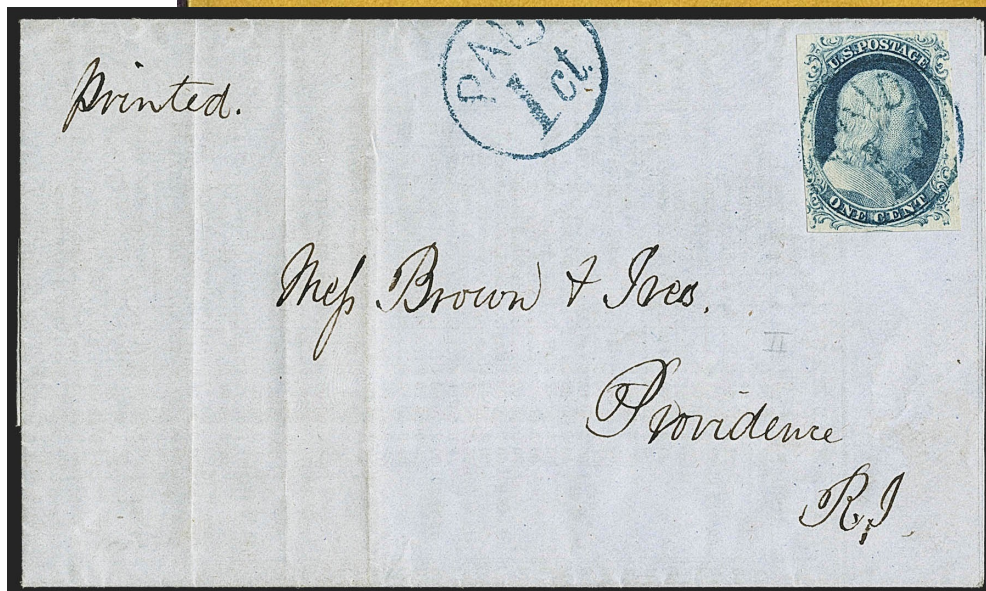 printed.
PAID
1 ct.
U.S. POSTAGE
PAID
ONE CENT
Mess Brown & Ives.
II
Providence
R.I.